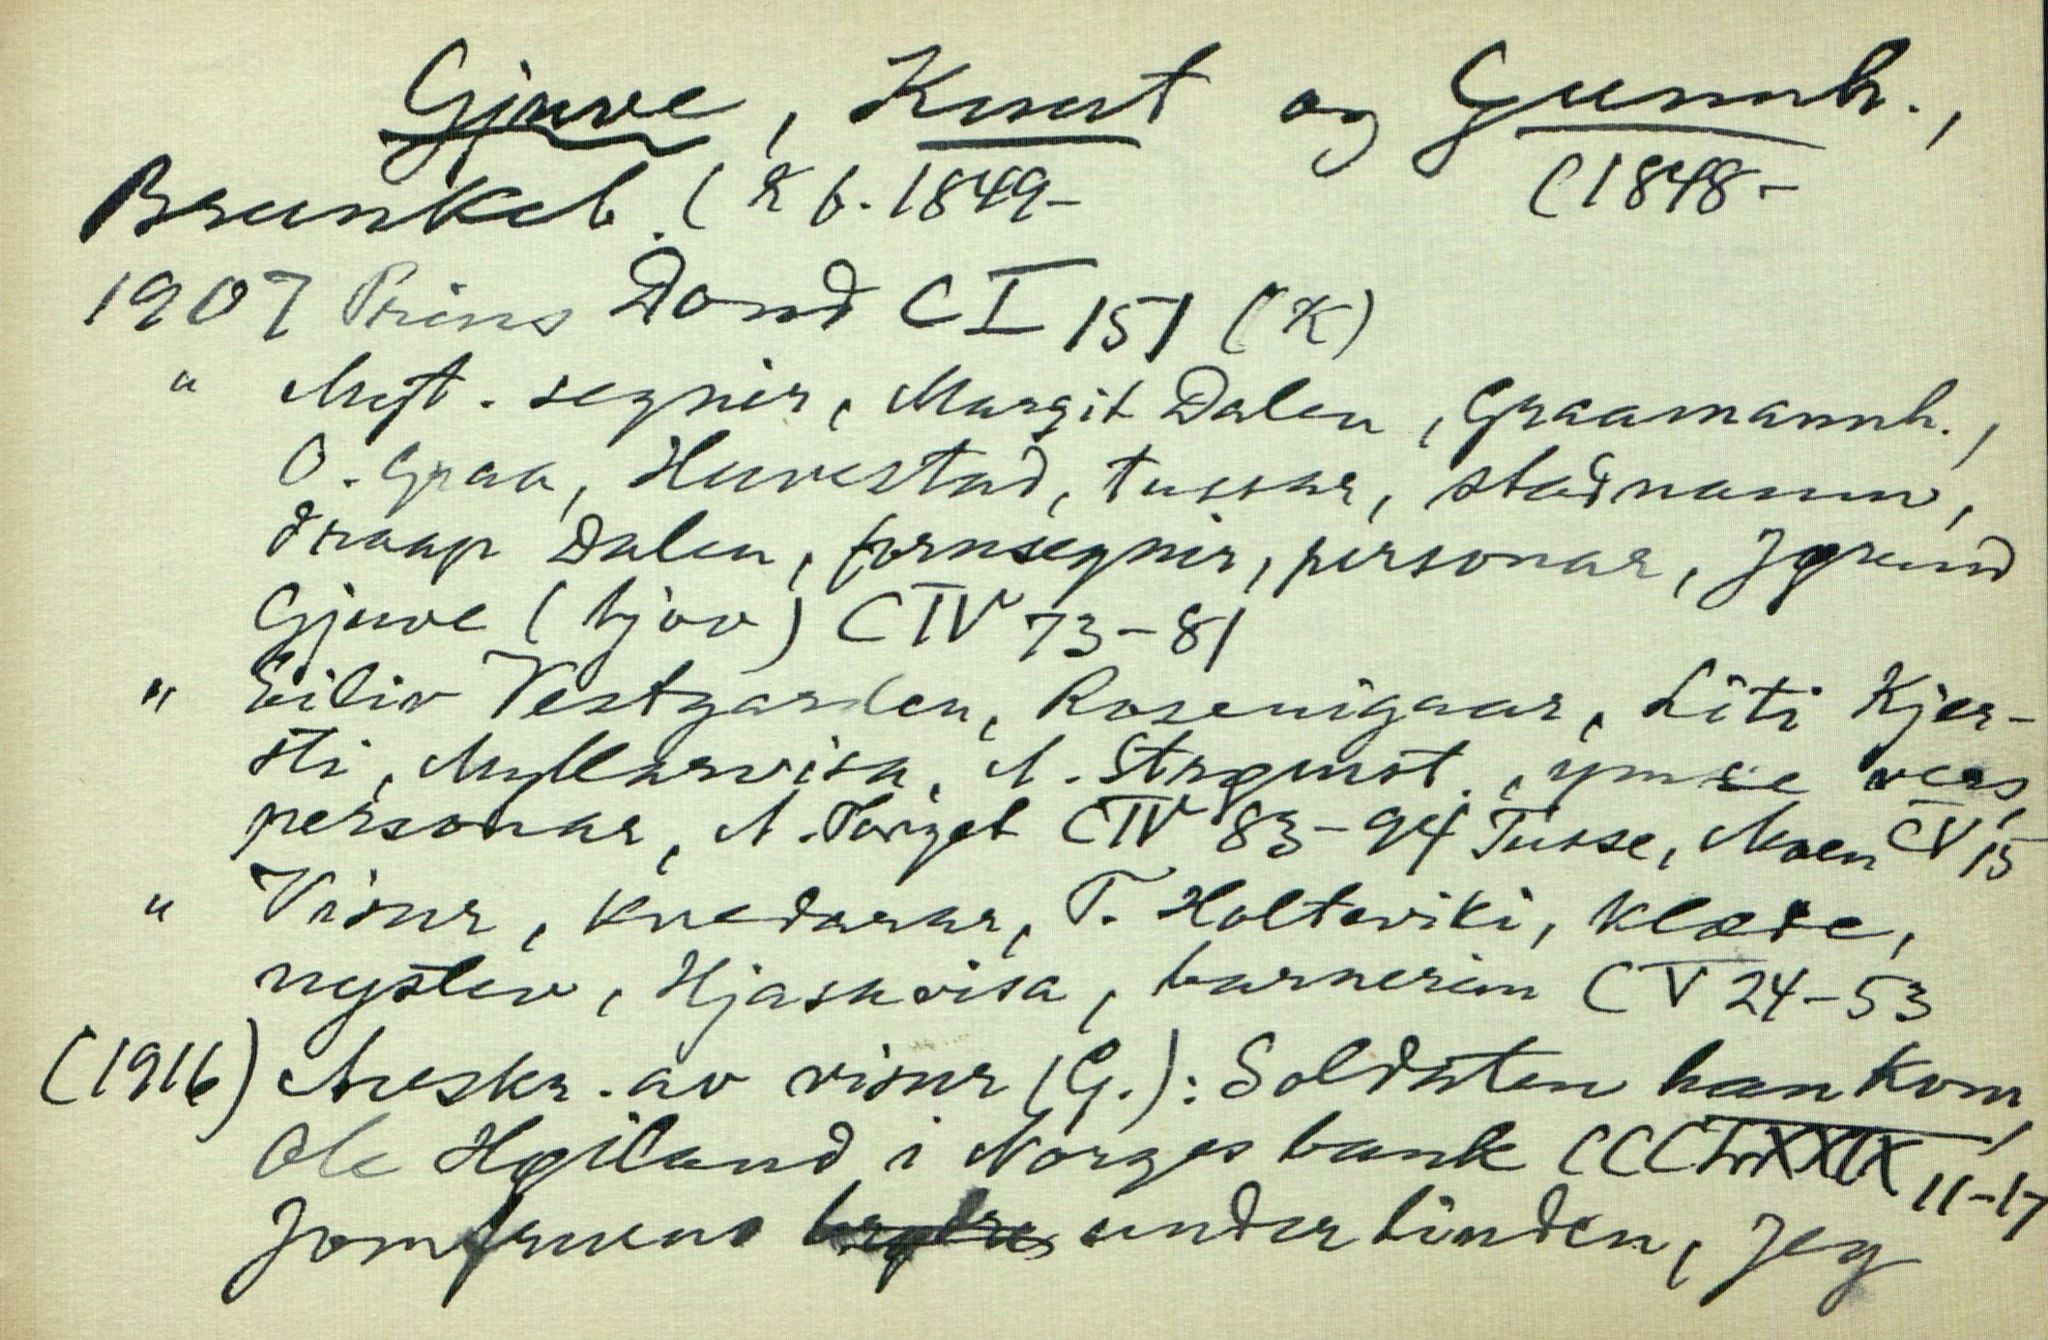 Gjuve, Knut og Gunnh.,
Brunkeb. (K f. 1849- (1848-
1907 Prins Dond CI 151 (K)
" Myt. segner, Margit Dalen, Graamannh.,
O. Graa, Huvestad, tussar, stadnamn,
draap Dalen, fornsegner, personar, Jørund
Gjuve (tjov) CIV 73-81
" Eiliv Vestgarden, Rosenigaar, Liti Kjer-
sti, Myllarvisa, A. Strømst., ymse vers,
personar, A. CIV 83-94 Tusse, Moen CV 15
" Visur, kvedarar, T. Holteviki, klæde,
nystev, Hjasavisa, barnerim CV 24-53
(1916) Avskr. av visur (G.): Soldaten han kom,
Ole Høiland i Norges bank 11-17
Jomfruens under linden, Jeg